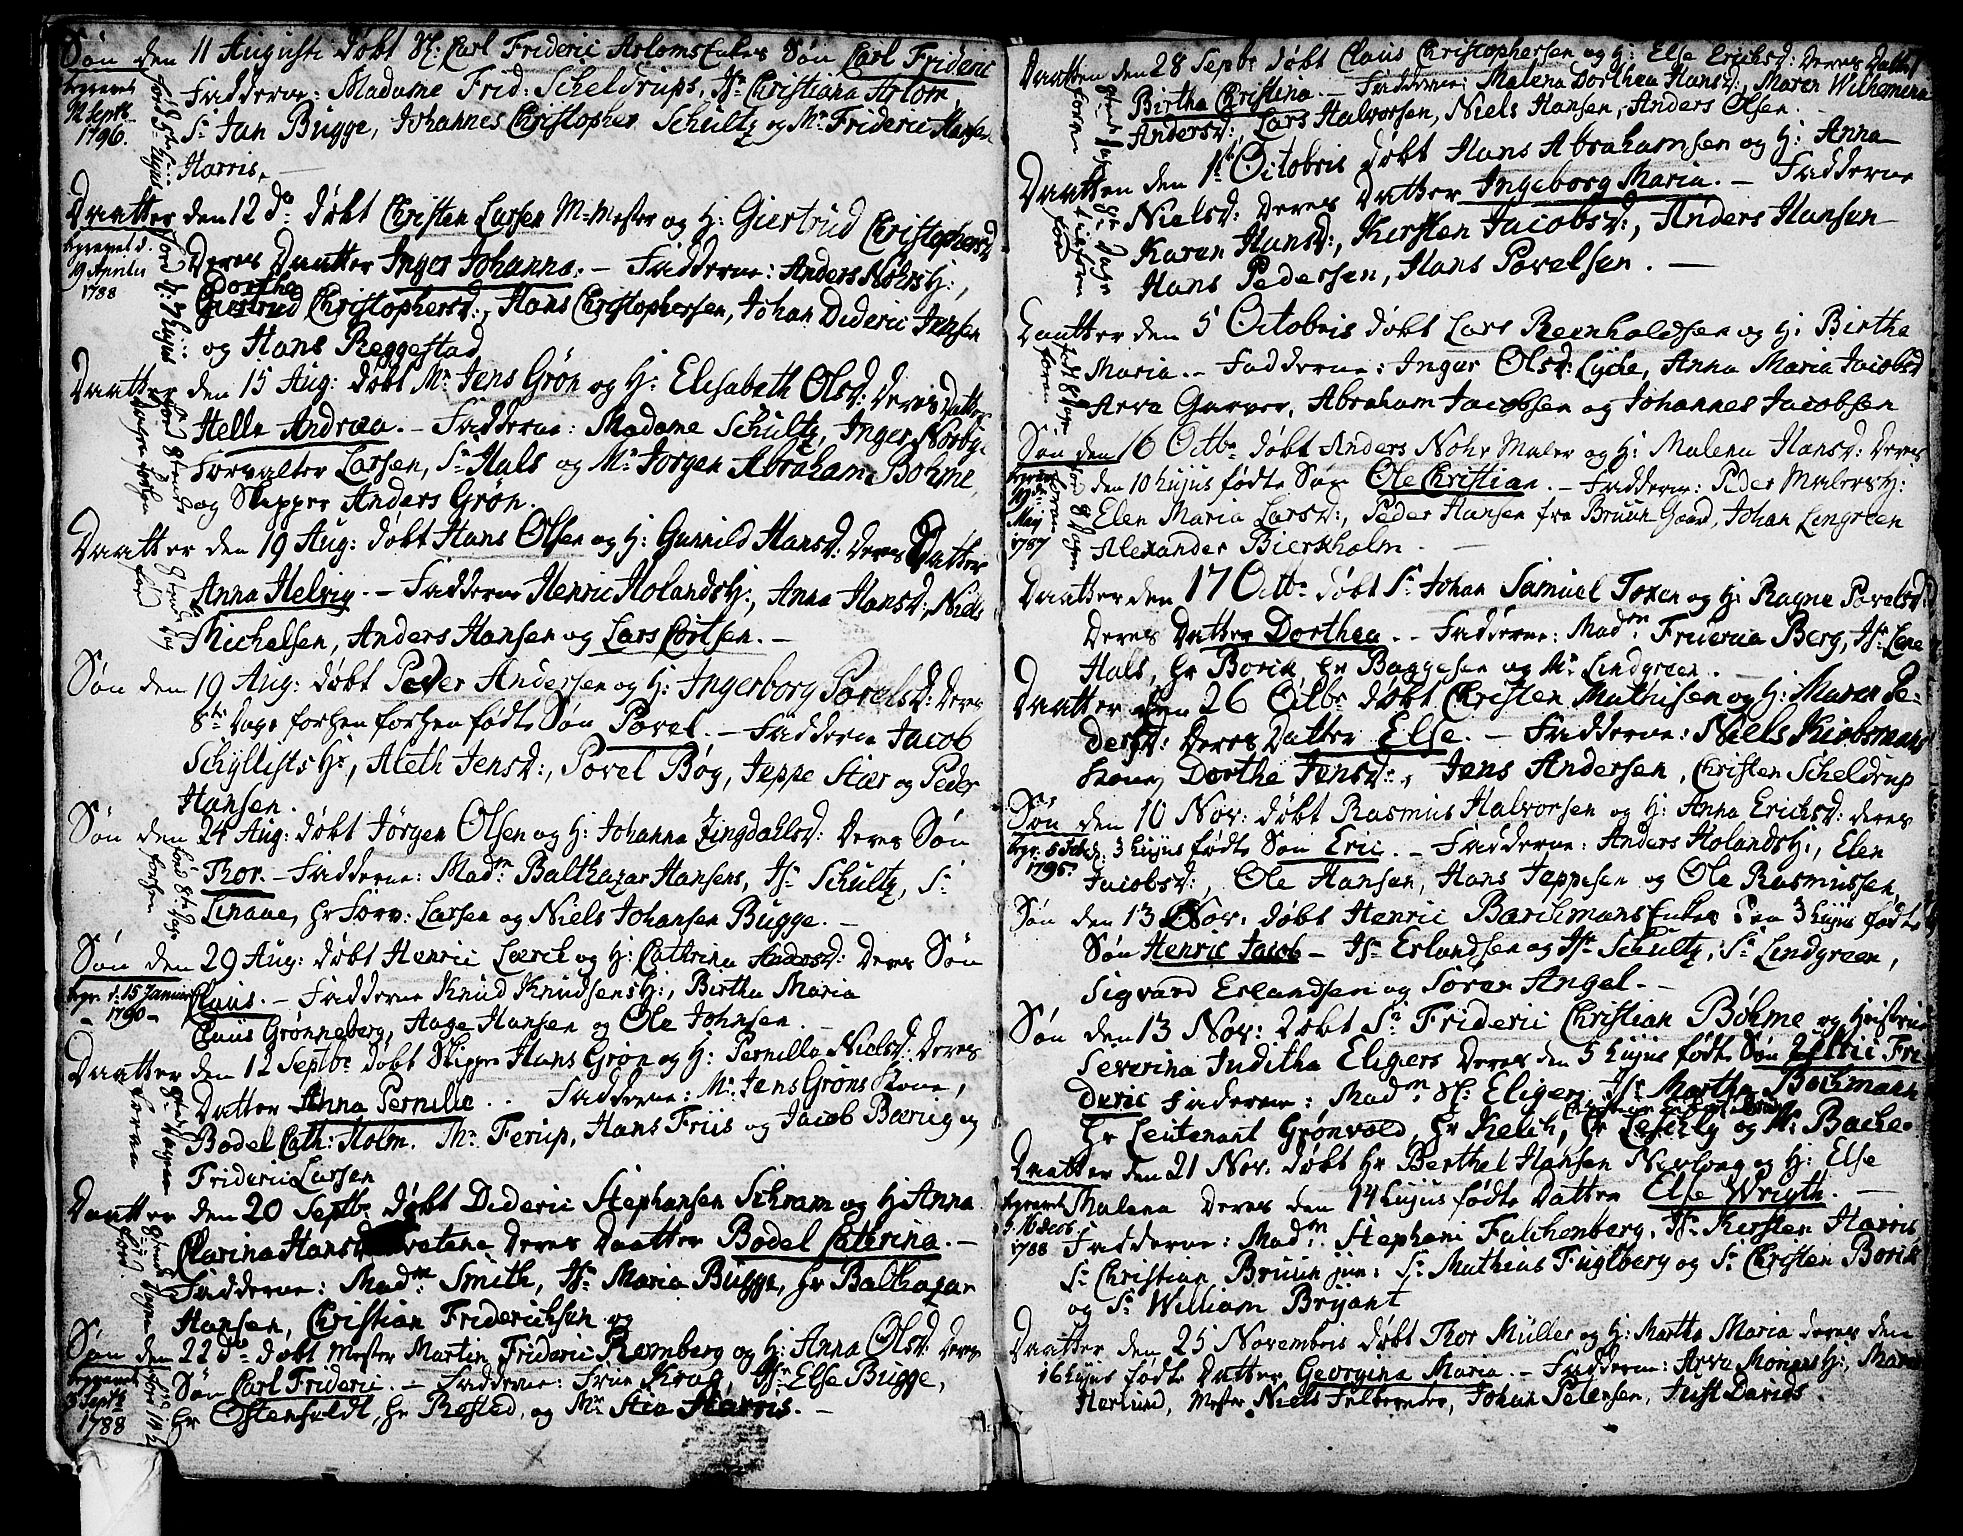 Søn den 11 Augusti døbt Sl: Carl Frideric Arloms Enkes Søn Carl Frideric
begravet
1796.
Fadderne: Madame Frid: Scheldrups, Jfr Christiana Arlom,
Sr Jan Bugge, Johannes Christopher Schultz og Mr Frideric Hansen
Harris. —
Daatter den 12 do døbt Christen Larsen M-Mester og H: Giertrud Christophersd
begravet d.
19 Aprilis
1788
Deres Daatter Inger Johanna. — Fadderne: Anders Nohrs H:,
Dorthea
Giertrud Christophersd:, Hans Christophersen, Johan Dideric Jensen
og Hans Reggestad
Daatter den 15 Aug: døbt Mr Jens Grøn og H: Elisabeth Olsd: Deres Datter
Helle Andrea. — Fadderne: Madame Schultz, Inger Norbye
Forvalter Larsen, Sr Hals og Mr Jørgen Abraham Bøhme,
og Skipper Anders Grøn.
Daatter den 19 Aug: døbt Hans Olsen og H: Gunnild Hansd: Deres Datter
Anna Helvig. — Fadderne Henric Holands H:, Anna Hansd:, Niels
Michelsen, Anders Hansen og Lars Cortsen. —
Søn den 19 Aug: døbt Peder Andersen og H: Ingerborg Povelsd: Deres
8te Dage forhen forhen fødte Søn Povel. — Fadderne Jacob
Schyllists Hr, Aleth Jensd:, Povel Bøg, Jeppe Stær og Peder
Hansen.
Søn den 24 Aug: døbt Jørgen Olsen og H: Johanna Lingdahlsd: Deres Søn
Thor. — Fadderne: Madm Balthazar Hansens, Jfr Schultz, Sr
Linaae, Hr Forv: Larsen og Niels Johansen Bugge. —
Søn den 29 Aug: døbt Henric Lærck og H: Cathrina Andersd: Deres Søn
begr. d: 15 Januarii
1790
Claus. — Fadderne Knud Knudsens H:, Birtha Maria
Claus Grønneberg, Aage Hansen og Ole Johnsen.
Daatter den 12 Septbr døbt Skipper Hans Grøn og H: Pernilla Nielsd: Deres
Datter Anna Pernille. Fadderne: Mr Jens Grøns Kone,
Bodel Cath: Holm. Mr Ferup, Hans Friis og Jacob Baring og
Frideric Larsen
Daatter den 20 Septbr døbt Dideric Stephansen Schram og H: Anna
Clarina Hansd Deres Daatter Bodel Catrina. —
Fadderne: Madm Smith, Jfr Maria Bugge, Hr Balthazar
Hansen, Christian Friderichsen og
Søn den 22 do døbt Mester Martin Frideric Remberg og H: Anna Olsd: Deres
begravet
3 Septr
1788
Søn Carl Frideric. — Fadderne: Frue Krag, Jfr Else Bugge,
Hr Østenfeldt, Hr Rosted, og Mr Harris. —
Daatter den 28 Septbr døbt Claus Christophersen og H: Else Ericksd: Deres Datter
Birtha Christina. — Fadderne: Malena Dorthea Hansd:, Maren Wilhemina
Andersd:, Lars Halvorsen, Niels Hansen, Anders Olsen.
Daatter den 1te Octobris døbt Hans Abrahamsen og H: Anna
Nielsd: Deres Datter Ingeborg Maria. — Fadderne
Karen Hansd:, Kersten Jacobsd:, Anders Hansen
Hans Pedersen, Hans Povelsen. —
Daatter den 5 Octobris døbt Lars Reinholdsen og H: Birthe
Maria. — Fadderne: Inger Olsd: Lyche, Anna Maria Jacobsd
Arve Garver, Abraham Jacobsen og Johannes Jacobsen
Søn den 16 Octbr døbt Anders Nohr Maler og H: Malena Hansd: Deres
begravet
19de
May
1787
den 10 hujus fødte Søn Ole Christian. — Fadderne: Peder Malers H:
Elen Maria Larsd:, Peder Hansen fra Bruun Gaard, Johan Lingreen
Alexander Bierkholm. —
Daatter den 17 Octbr døbt Sr Johan Samuel Toxen og H: Ragne Povelsd:
Deres Datter Dorthea. — Fadderne: Madm Friderica Berg, Jfr Lene
Hals, Hr Borin, Hr Baggesen og Mr Lindgreen.
Daatter den 26 Octbr døbt Christen Mathisen og H: Maren Pe-
dersd: Deres Datter Else. — Fadderne: Niels Kiøbsmans
Kone, Dorthe Jensd:, Jens Andersen, Christen Scheldrup
Søn den 10 Nov: døbt Rasmus Halvorsen og H: Anna Ericksd: deres
begr: 5
1795.
d: 3 hujus fødte Søn Eric. — Fadderne: Anders Holands H:, Elen
Jacobsd:, Ole Hansen, Hans Jeppesen og Ole Rasmussen
Søn den 13 Nov: døbt Henric Barchmans Enkes den 3 hujus fødte
Søn Henric Jacob — Jfr Erlandsen og Jfr Schultz, Sr Lindgreen,
Sigvard Erlandsen og Søren Angel. —
Søn den 13 Nov: døbt Sr Frideric Christian Bøhme og Hustrue
Severina Juditha Eligers Deres den 5 hujus fødte Søn Ulric Fri
deric Fadderne: Madm Sl: Eliger, Jfr Martha Bachmann
Hr Leutenant Grønvold, Hr Kelch, Hr og Mr Bache.
Daatter den 21 Nov. døbt Hr Berthel Hansen Nerlong og H: Else
begravet
1788
Malena Deres den 14 hujus fødte Datter Else Wrigth. —
Fadderne: Madm Stephani Falchenberg, Jfr Kersten Harris
Sr Christian Bruun jun: Sr Mathias Fuglberg og Sr Christen Borik
og Sr William Bryant
Daatter den 25 Novembris døbt Thor Müller og H: Martha Maria deres den
16 hujus fødte Datter Georgina Maria. — Fadderne: Arve Moriens H:, Maria
Herlund, Mester Niels Felbereder, Johan Petersen, Just Davids.